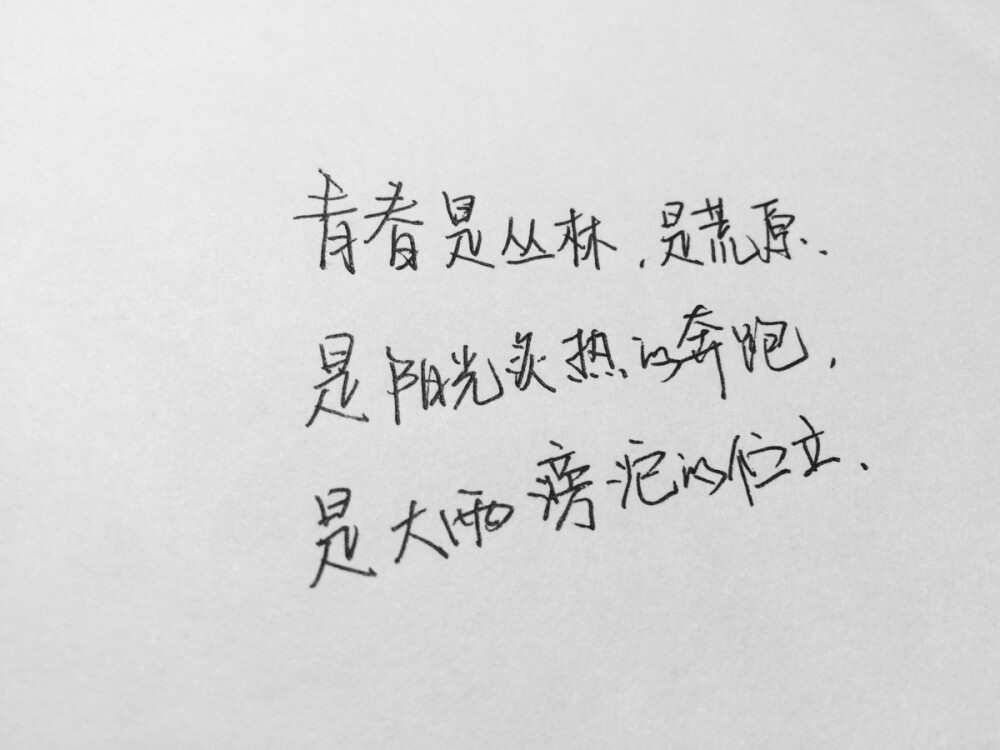 青春是丛林,是荒原.
是阳光炙热的奔跑,
是大雨滂沱的伫立.